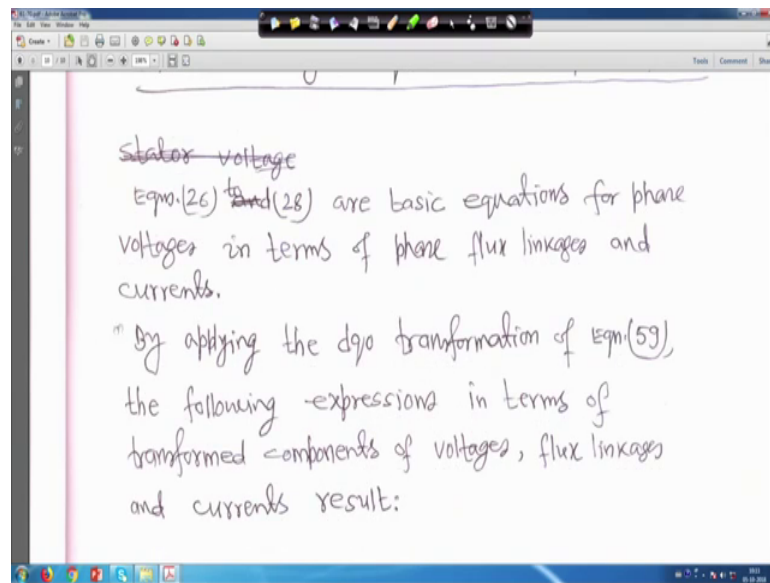 Create
Tools Comment
Stator voltage
Eqns.(26) to (28) are basic equations for phase
voltages in terms of phase flux linkages and
currents.
By applying the dqo transformation of Eqn.(59),
the following expressions in terms of
transformed components of voltages, flux linkages
and currents result: